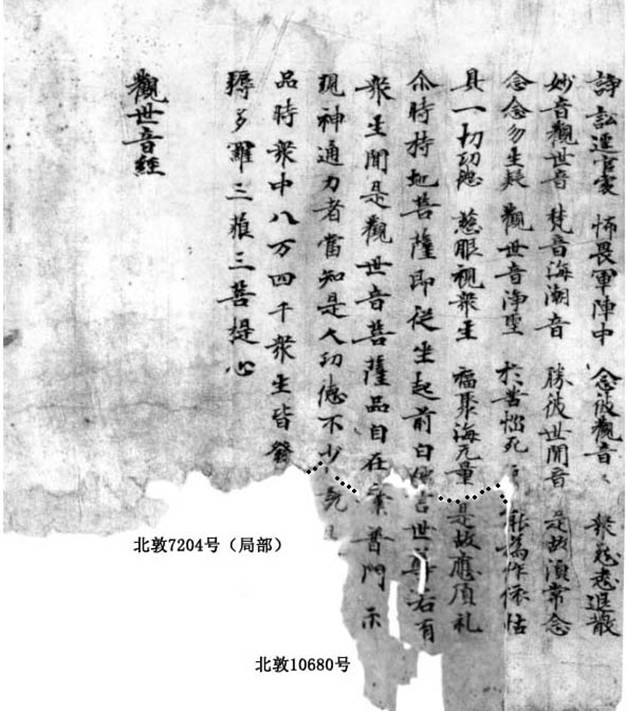 諍訟逕官處 怖畏軍陣中 念彼觀音〻 衆怨悉退散
妙音觀世音 梵音海潮音 勝彼世間音 是故須常念
念念勿生疑 觀世音浄聖 於苦惱死 能為作依怙
具一切功德 慈眼視衆生 福聚海无量 是故應頂礼
尒時持地菩薩即従坐起前白佛言世尊若有
衆生聞是觀世音菩薩品自在業普門示
現神通力者當知是人功德不少
品時衆中八万四千衆生皆發
耨多羅三藐三菩提心
觀世音經
北敦7204号（局部）
北敦10680号